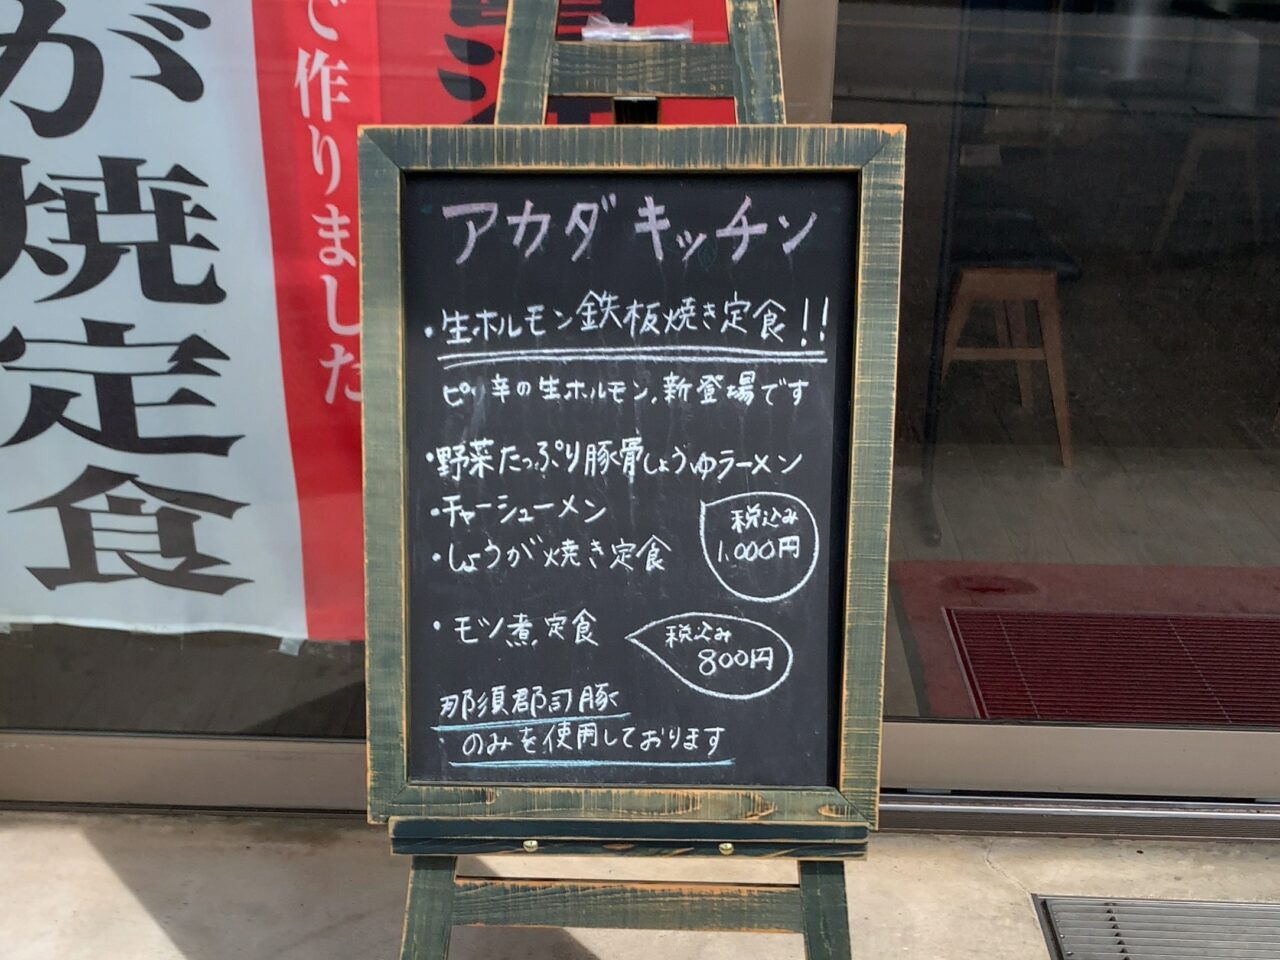 が焼定食
で作りました
アカダキッチン
・生ホルモン鉄板焼き定食!!
ピリ辛の生ホルモン,新登場です
・野菜たっぷり豚骨しょうゆラーメン
・チャーシューメン
・しょうが焼き定食
税込み
1,000円
・モツ煮定食
税込み
800円
那須郡司豚
のみを使用しております